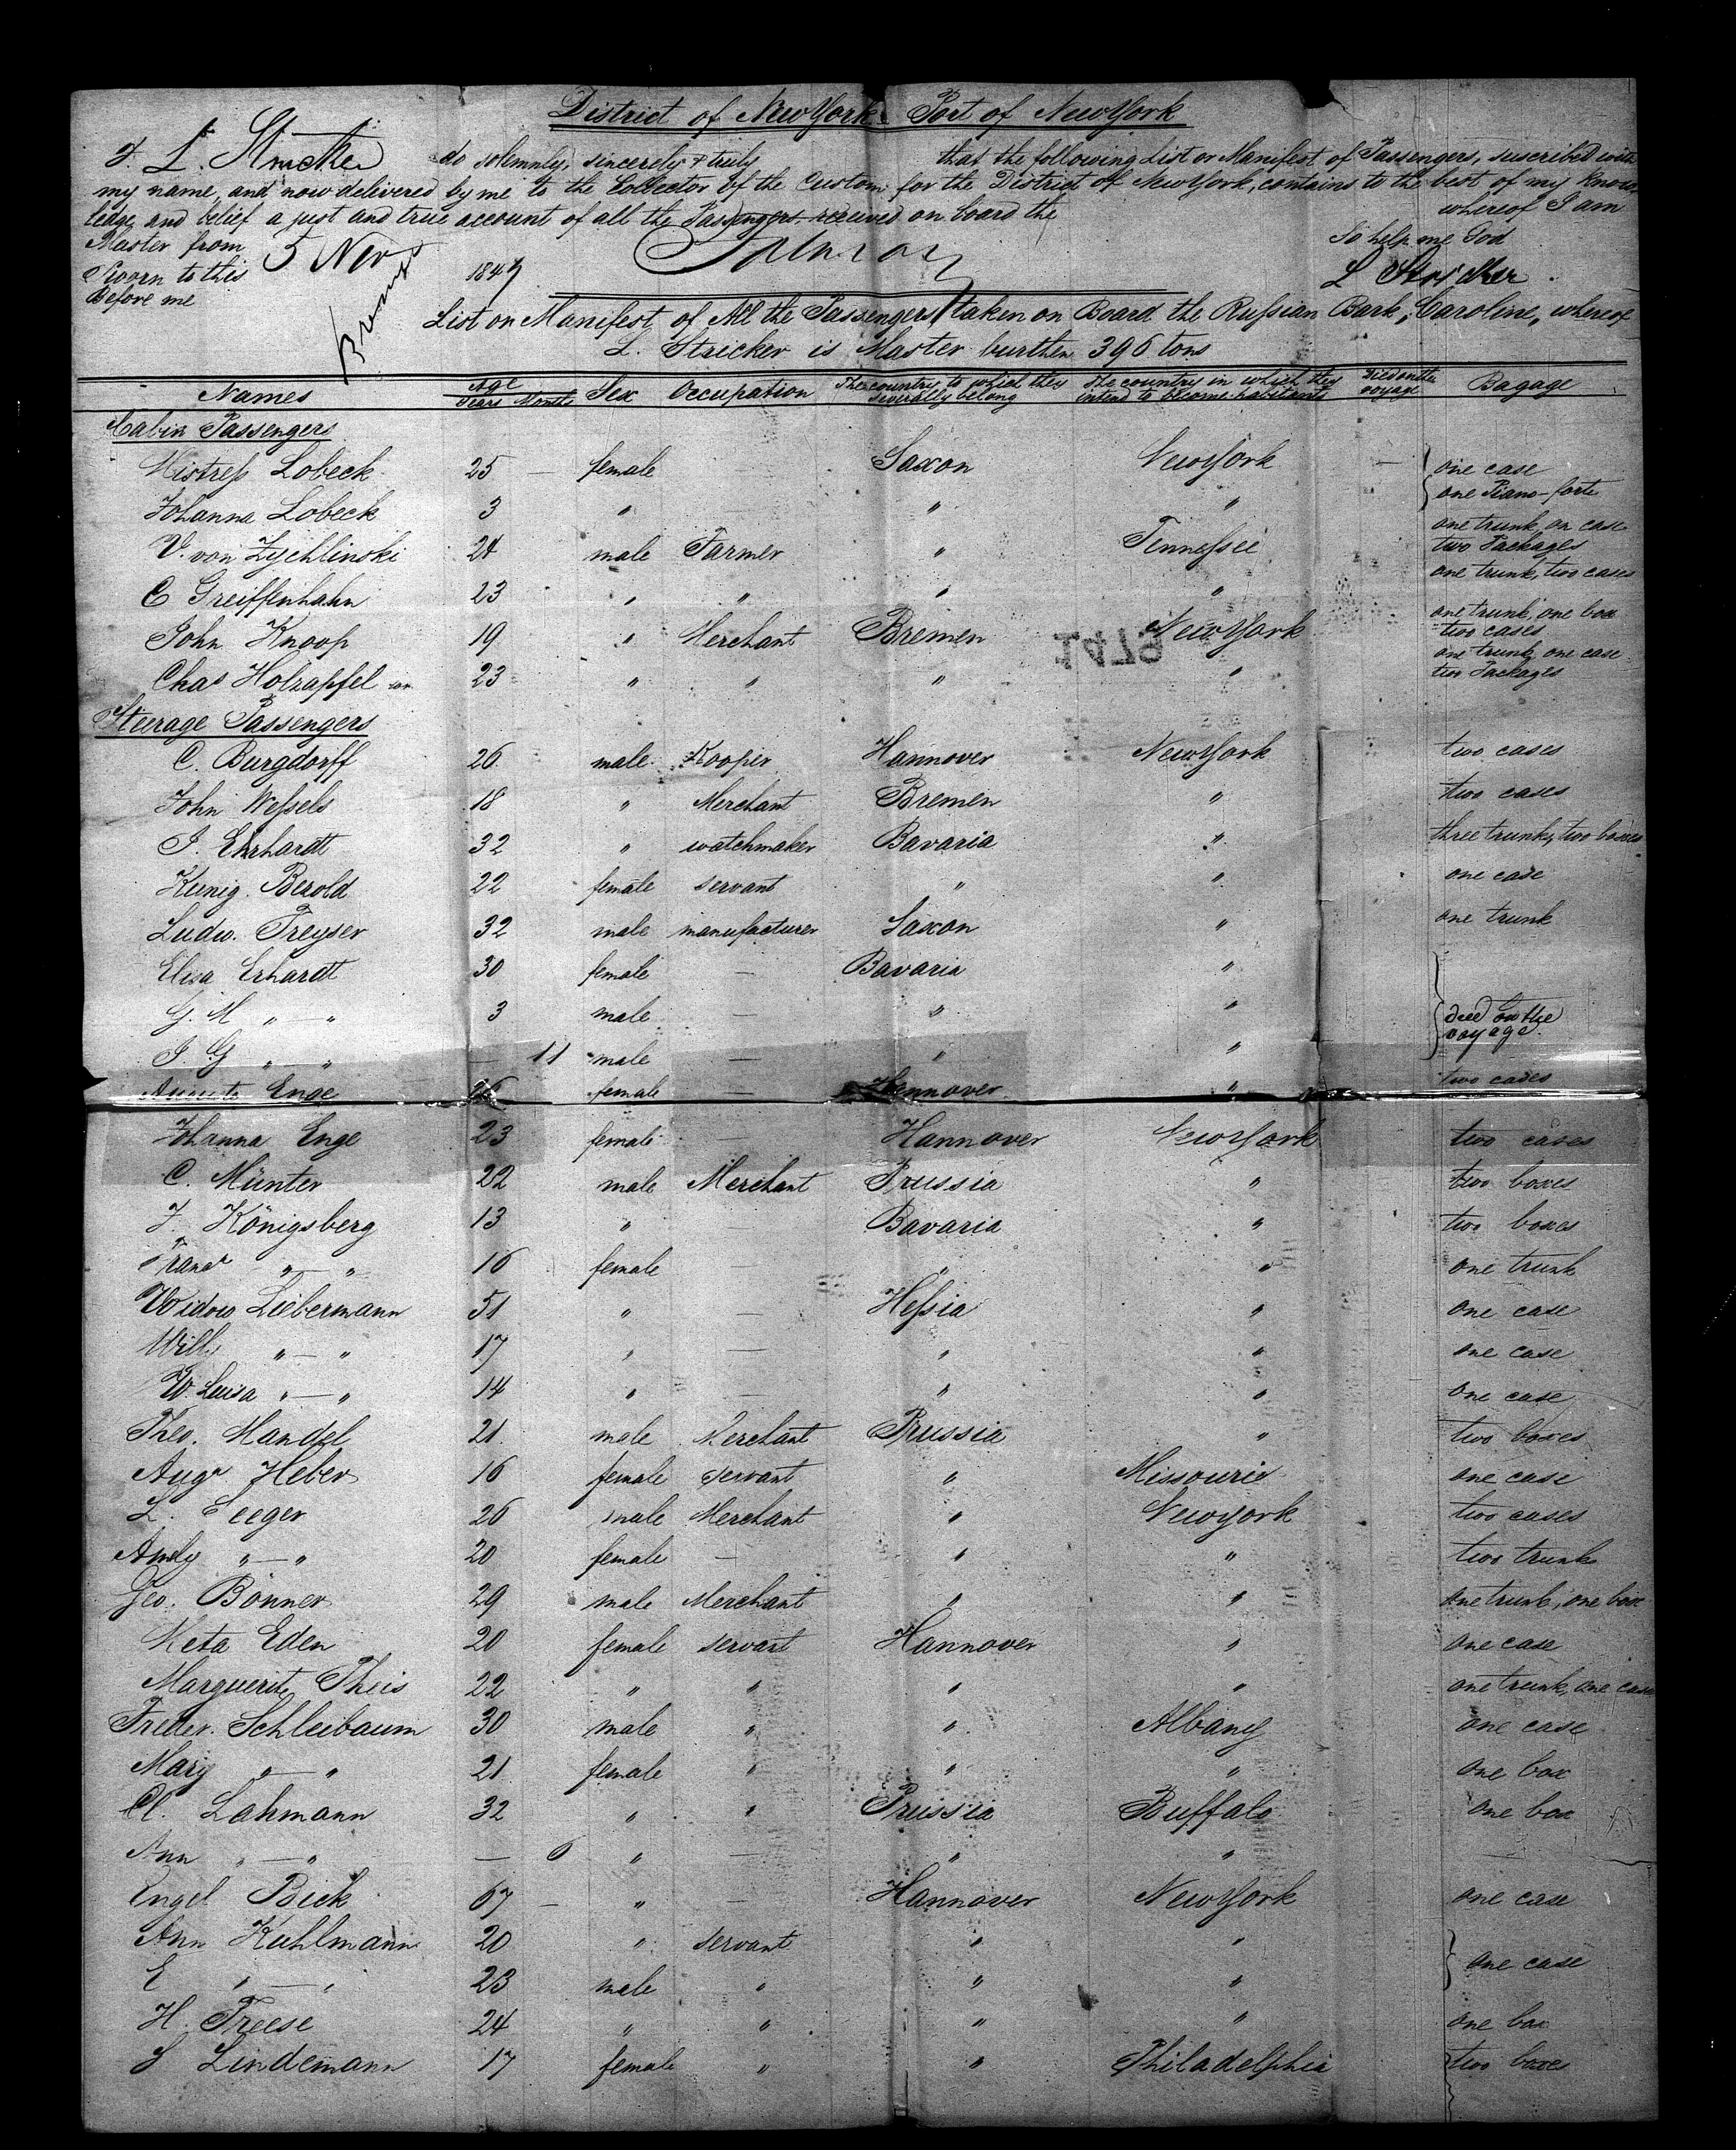 District of New York Port of New York
I. L. Stricker do solemnly, sincerely & truly that the following List or Manifest of Passengers, suscribed with
my name, and now delivered by me to the Collector of the Custom for the District of New York, contains to the best of my know-
ledge and belief a just and true account of all the Passengers received on board the whereof I am
Master from Bremen So help me God
Sworn to this 5 Nov 1847 L Stricker
Before me
List or Manifest of All the Passengers taken on Board the Rußian Bark "Caroline" whereof
L. Stricker is Master burthen 396 tons
Names Age Years Months Sex Occupation The country to which they severally belong The country in which they intend to become habitants Died on the voyage Bagage
Cabin Passengers
Mistreß Lobeck 25 — female Saxon New York — one case
one Piano-forte
Johanna Lobeck 3 " " "
V. von Zychlinski 24 male Farmer " Tenneßee one trunk, on case
two Packages
C Greiffenhahn 23 " " " " one trunk, two cases
John Knoop 19 " Merchant Bremen New York one trunk one box
two cases
1479
Chas Holzapfel 23 " " " " one trunk, one case
two Packages
Steerage Passengers
C. Burgdorff 26 male Kooper Hannover New York two cases
John Weßels 18 " Merchant Bremen " two cases
J. Ehrhardt 32 " watchmaker Bavaria " three trunks, two boxes
Kunig. Berold 22 female servant " " one case
Ludw. Freyser 32 male manufacturer Saxon " one trunk
Elisa Erhardt 30 female — Bavaria "
G. M " — " 3 male — " " died on the
voyage
J G " — " — 11 male — " "
Augusta Enge 26 female — Hannover " two cases
Johanna Enge 23 female — Hannover New York two cases
C. Münter 22 male Merchant Prussia " two boxes
J. Königsberg 13 " — Bavaria " two boxes
" — " 16 female " " one trunk
Widow Liebermann 51 " — Heßia " one case
Will. " — " 17 " — " " one case
W. Luisa " — " 14 " — " " one case
Theo. Mandel 21 male Merchant Prussia " two boxes
Augr Heber 16 female servant " Missourie one case
L. Seeger 26 male Merchant " New york two cases
Amely " — " 20 female — " " two trunks
Geo. Bönner 29 male Merchant " " one trunk, one box
Meta Eden 20 female servant Hannover " one case
Marguerite Theis 22 " " " " one trunk, one case
Freder. Schleibaum 30 male " " Albany one case
Mary " — " 21 female " " " one box
Lahmann 32 " " Prussia Buffalo one box
Ann " — " — 6 " — " "
Engel Bick 67 — " — Hannover New York one case
Ann Kuhlmann 20 " servant " "
one case
E " — " 23 male " " "
H. Freese 24 " " " " one box
S Lindemann 17 female " " Philadelphia two boxes